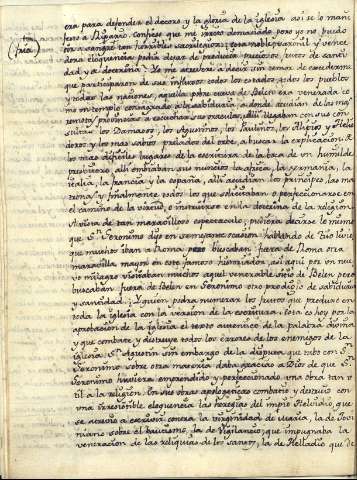 era para defender el decoro y la gloria de la iglesia así se lo mani
festó a Ripario. Confieso que me irrito demasiado pero yo no puedo
oir a sangre fria horribles sacrilegios; esta noble varonil y vence
dora eloquencia podia dejar de producir preciosos frutos de santi
dad y de doctrina? Yo me atrevere a decir sin temor de excederme
que participaron de su influxo todos los estados, todos los pueblos
y todas las naciones, aquella pobre cueva de Belen era venerada co
mo un templo consagrado a la sabiduria, a donde acudian de las mas
remotas provincias a escuchar sus oraculos, alli llegaban con sus con
sultas los Damasos, los Agustinos, los Paulinos,
doros y los mas sabios prelados del orbe, a buscar la explicacion de
los mas dificiles lugares de la escritura de la boca de un humilde
presbitero, alli embiaban sus nuncios la africa, la germania, la
italia, la francia y la españa, alli acudian los principes, las ma
tronas y finalmente todos los que solicitaban o perfeccionarse en
el camino de la virtud, o instruirse en la doctrina de la religion
A vista de tan maravilloso espectaculo, pudiera decirse lo mismo
que Sn. Geronimo dijo en semejante ocasión hablando de Tito Livio
que muchos iban a Roma pero buscaban fuera de Roma otra
maravilla mayor en este famoso historiador, asi aqui por un nue
vo milagro visitaban muchos aquel venerable sitio de Belen pero
buscaban fuera de Belen en Geronimo otro prodigio de sabiduria
y santidad. ¿Y quien podra numerar los frutos que produxo en
toda la iglesia con la version de la escritura? Esta es hoy por la
aprobacion de la iglesia el texto autentico de la palabra divina
y que combate y destruye todos los errores de los enemigos de la
iglesia. Sn. Agustin sin embargo de la disputa que tubo con Sn.
Geronimo sobre otra materia daba gracias a Dios de que Sn.
Geronimo huviera emprendido y perfeccionado una obra tan u
til a la religion. En sus obras apologeticas combatio y destruio con
una irresistible eloquencia las heregias del impio Helvidio, que
se atrevio a escribir contra la virginidad de Maria, la de Jovi
niano sobre el bautismo, la de Vigilancio, que impugnaba la
veneracion de las reliquias de los santos, la de Helvidio que de